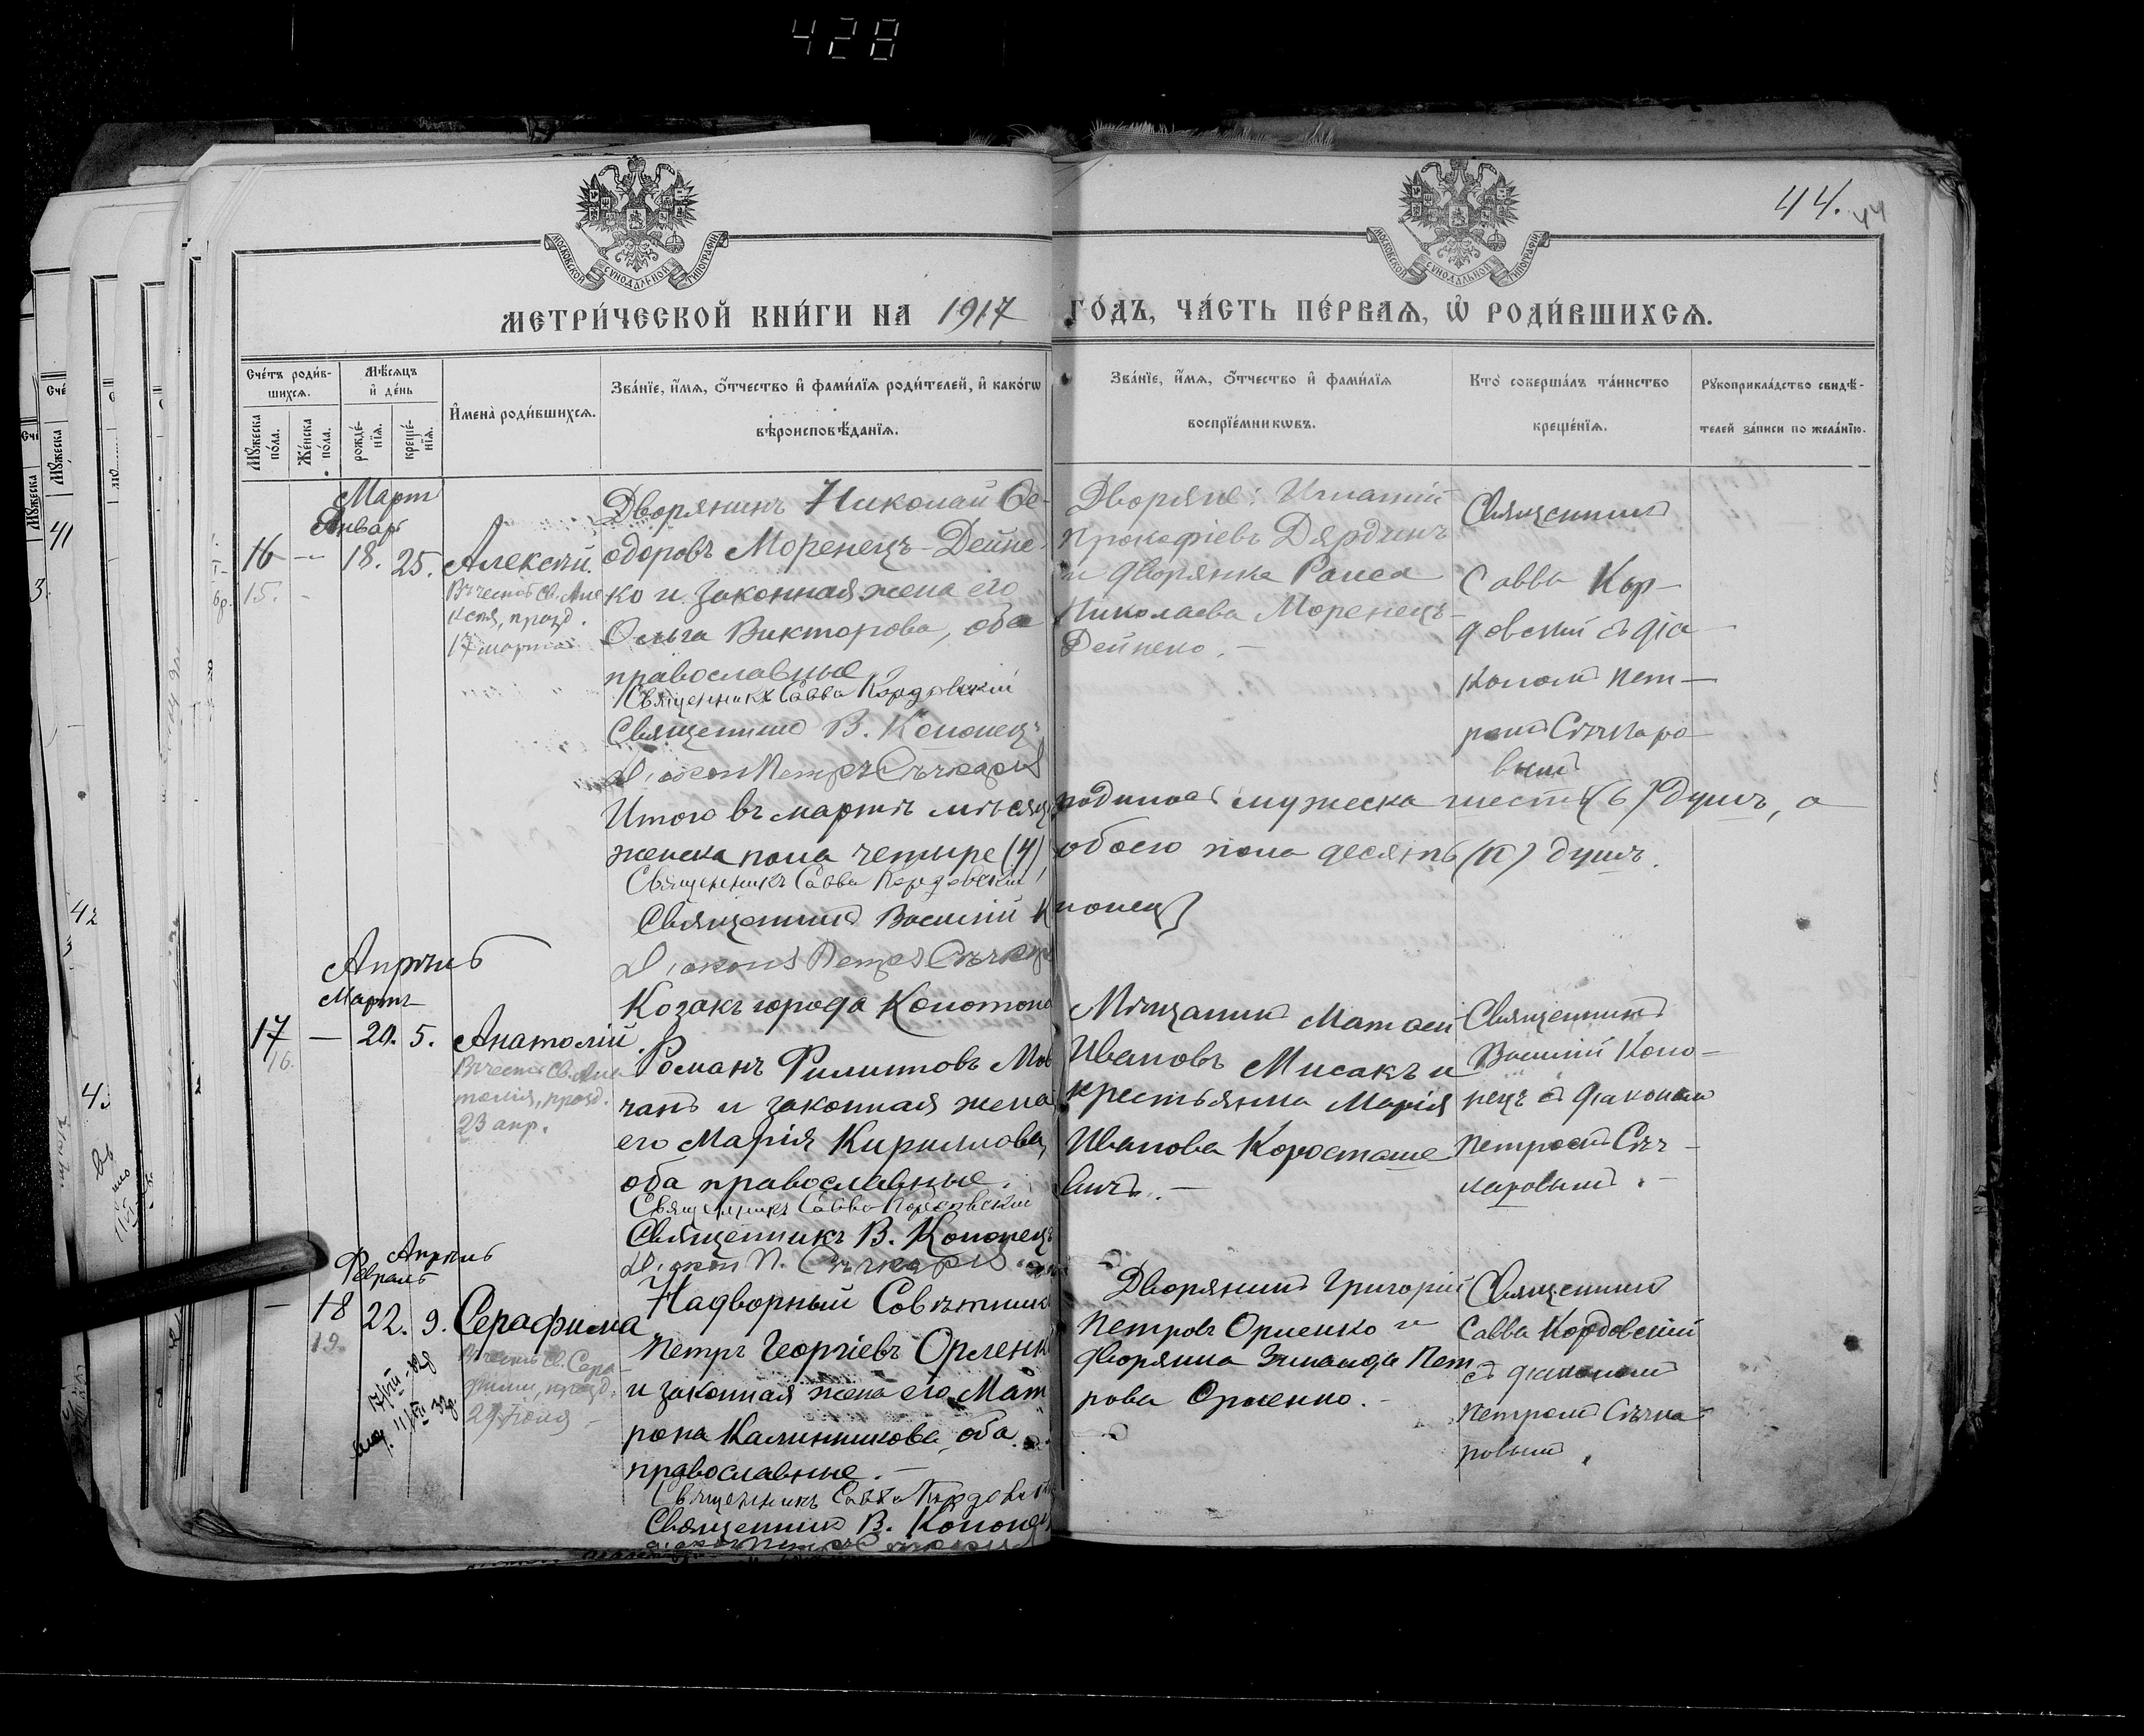 428
44.
44
МОСКОВСКОЙ СѴНОДАЛЬНОЙ ТИПОГРАФІИ
МОСКОВСКОЙ СѴНОДАЛЬНОЙ ТИПОГРАФІИ
МЕТРИ́ЧЕСКОЙ КНИ́ГИ НА 1917 ГО́ДЪ, ЧА́СТЬ ПЕ́РВАѦ, Ѡ҆ РОДИ́ВШИХСѦ.
Сче́тъ роди́в-
шихсѧ.
Мꙋ́жеска по́ла.
Же́нска по́ла.
Мѣ́сѧцъ
и҆ де́нь
рожде́-
нїѧ.
креще́-
нїѧ.
И҆мена̀ роди́вшихсѧ.
Зва́нїе, и҆́мѧ, ѻ҆́тчество и҆ фами́лїѧ роди́телей, и҆ како́гѡ
вѣроисповѣ́данїѧ.
Зва́нїе, и҆́мѧ, ѻ҆́тчество и҆ фами́лїѧ
воспрїе́мникѡвъ.
Кто̀ соверша́лъ та́инство
креще́нїѧ.
Рꙋкоприкла́дство свидѣ́-
телей за́писи по жела́нїю.
Март
Январь
16 — 18. 25. Алексѣй.
15. -
Въ честь св. Але
ксія, празд.
17 марта
Дворянинъ Николай Ѳе-
одоровъ Моренецъ-Дейне
ко и законная жена его
Ольга Викторова, оба
православные
Священникъ Савва Кордовскій
Священникъ В. Кононецъ
Діаконъ Петръ Сѣчкарь
Дворяне: Игнатій
Прокофіевъ
и дворянка Раиса
Николаева Моренецъ-
Дейнеко. —
Священникъ
Савва Кор-
довскій съ діа-
кономъ Пет-
ромъ Сѣчкаро-
вымъ
Итого въ мартѣ мѣсяц родилось мужеска шесть (6) душъ, а
женска пола четыре (4), обоего пола десять (10) душъ.
Священникъ Савва Кордовскій
Священникъ Василій Кононец
Діаконъ Петръ Сѣчкарь
Апрѣль
Мартъ
17 — 20. 5. Анатолій.
16.
Въ честь св. Ана
толія, празд.
23 апр.
Козакъ города Конотопа
Романъ Филипповъ Мов
чанъ и законная жена
его Марія Кириллова,
оба православные.
Священникъ Савва Кордовскій
Священникъ В. Кононецъ
Діаконъ П. Сѣчкарь
Мѣщанинъ Матвей
Ивановъ Мисакъ и
крестьянка Марія
Иванова Коросташе
вичъ. —
Священникъ
Василій Коно-
нецъ съ діакономъ
Петромъ Сѣч-
каровымъ. -
Апрѣль
Февраль
— 18 22. 9. Серафима
19.
Въ честь св. Сера
фимы, празд.
29 Іюля
Надворный Совѣтникъ
Петръ Георгіевъ Орленк
и законная жена его Мат
рона Калинникова, оба
православные. —
Священникъ Савва Кордовскій
Священникъ В. Кононец
Діаконъ Петръ Сѣчкарь
Дворянинъ Григорій
Петровъ Орленко и
дворянка Зинаида Пет
рова Орленко. -
Священникъ
Савва Кордовскій
съ діакономъ
Петромъ Сѣчка
ровымъ.